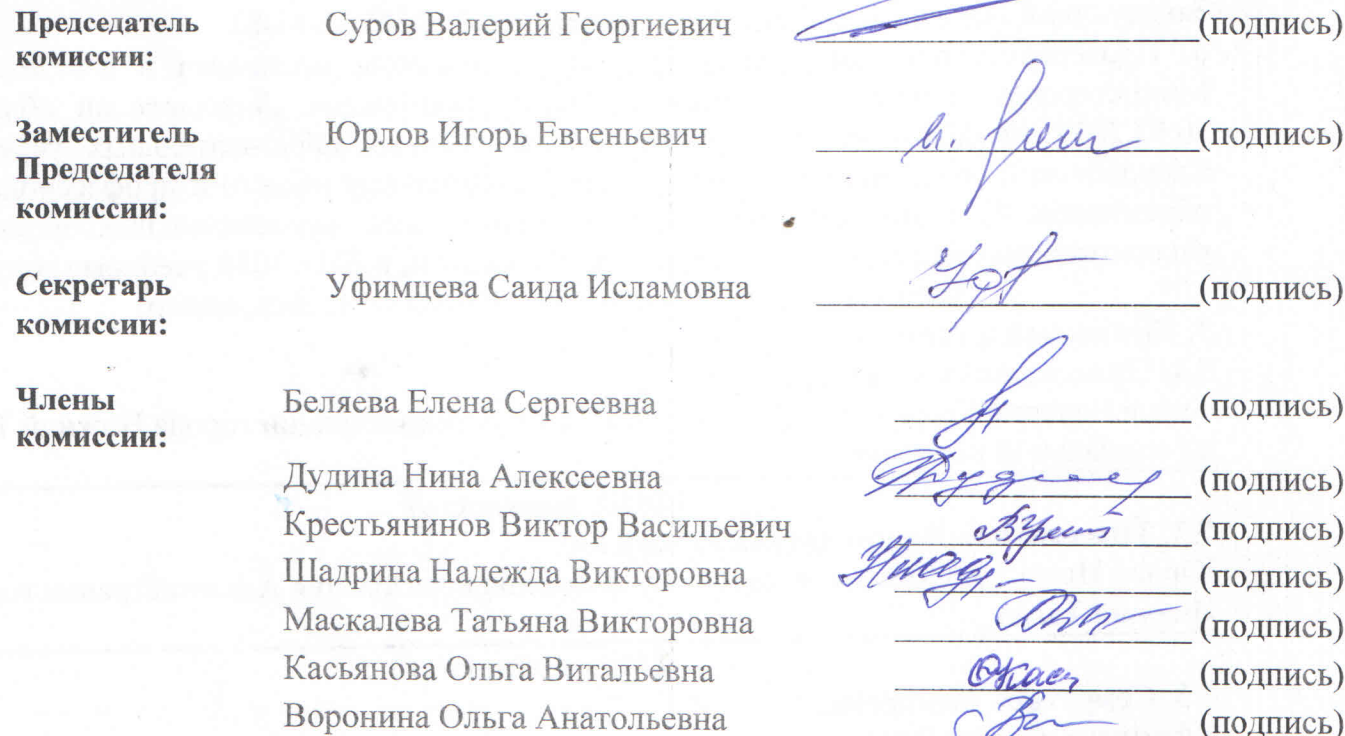 Председатель Суров Валерий Георгиевич (подпись)
комиссии:
Заместитель Юрлов Игорь Евгеньевич (подпись)
Председателя
комиссии:
Секретарь Уфимцева Саида Исламовна (подпись)
комиссии:
Члены Беляева Елена Сергеевна (подпись)
комиссии:
Дудина Нина Алексеевна (подпись)
Крестьянинов Виктор Васильевич (подпись)
Шадрина Надежда Викторовна (подпись)
Маскалева Татьяна Викторовна (подпись)
Касьянова Ольга Витальевна (подпись)
Воронина Ольга Анатольевна (подпись)